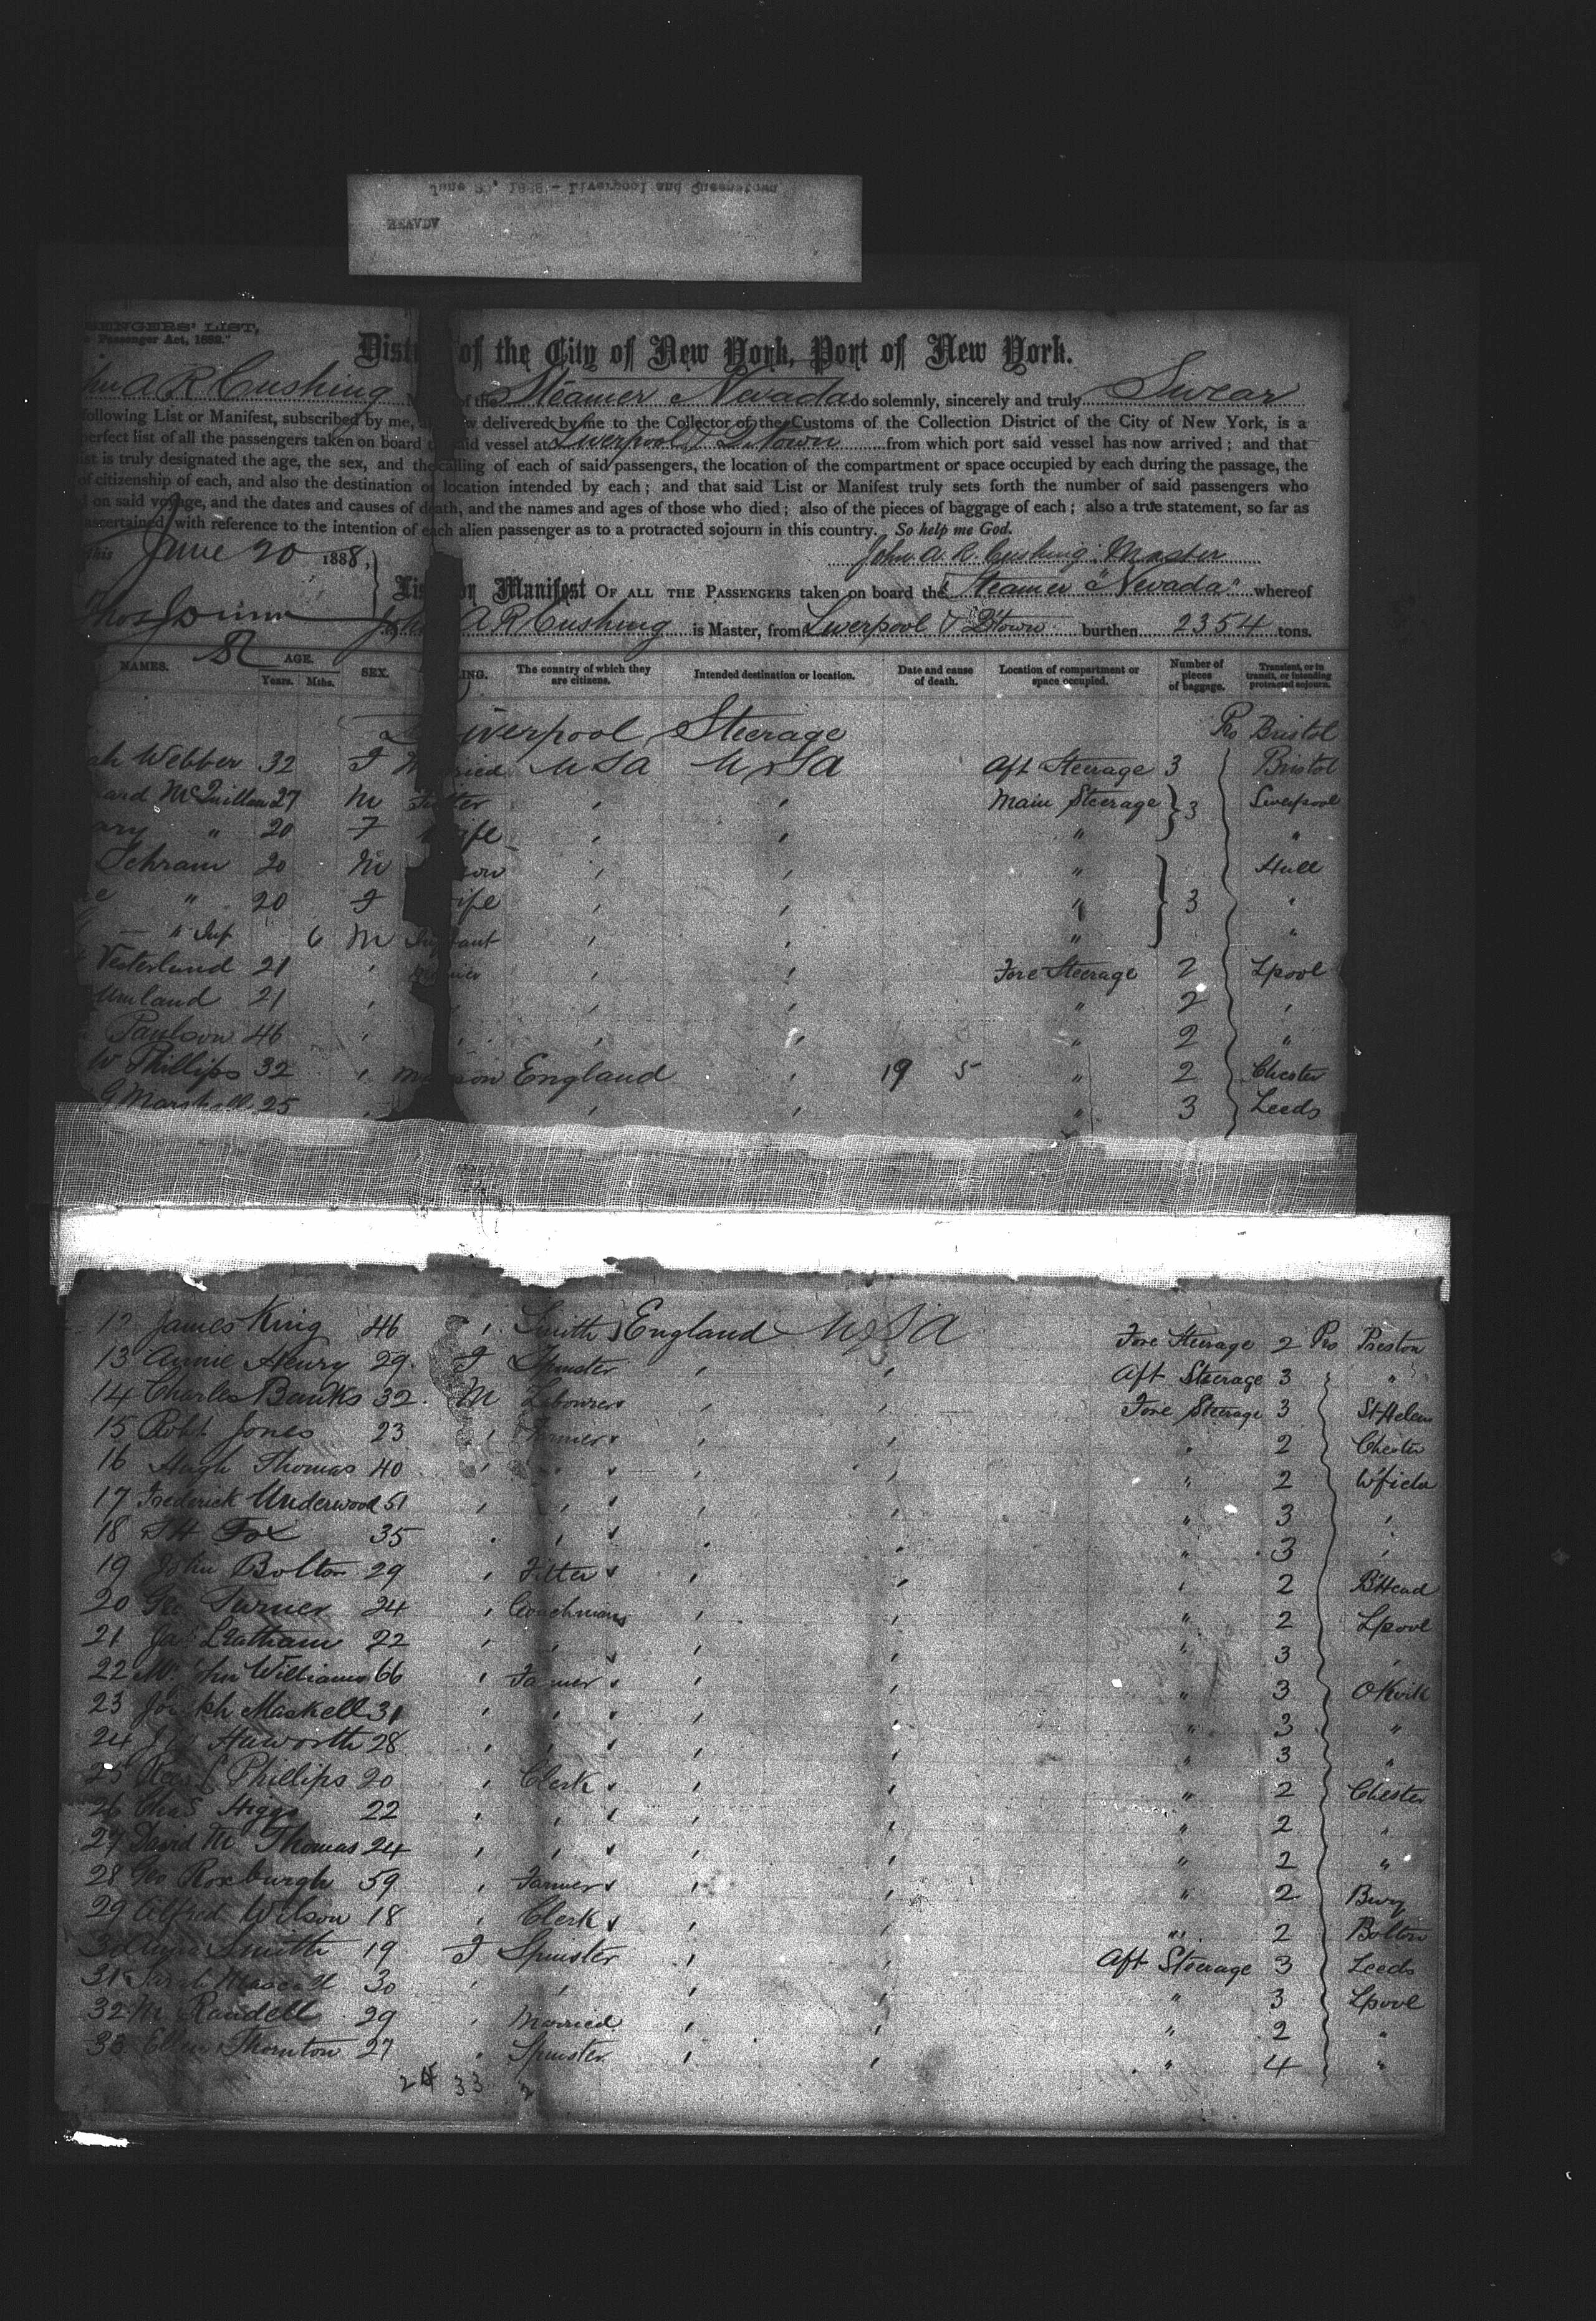 June 20, 1888 - Liverpool and Queenstown
NEVADA
SENGERS' LIST,
Passenger Act, 1882."
Dist of the City of New York, Port of New York.
hn A R Cushing of the Steamer Nevada do solemnly, sincerely and truly Swear
following List or Manifest, subscribed by me, w delivered by me to the Collector of the Customs of the Collection District of the City of New York, is a
perfect list of all the passengers taken on board aid vessel at Liverpool & Q.town from which port said vessel has now arrived; and that
ist is truly designated the age, the sex, and the calling of each of said passengers, the location of the compartment or space occupied by each during the passage, the
of citizenship of each, and also the destination or location intended by each; and that said List or Manifest truly sets forth the number of said passengers who
on said voyage, and the dates and causes of death, and the names and ages of those who died; also of the pieces of baggage of each; also a true statement, so far as
ascertained, with reference to the intention of each alien passenger as to a protracted sojourn in this country. So help me God.
this June 20 1888,
John A. R. Cushing Master
Manifest OF ALL THE PASSENGERS taken on board the Steamer "Nevada" whereof
John A R Cushing is Master, from Liverpool & Q'town burthen 2354 tons.
NAMES. AGE. Years. Mths. SEX. LING. The country of which they are citizens. Intended destination or location. Date and cause of death. Location of compartment or space occupied. Number of pieces of baggage. Transient, or in transit, or intending protracted sojourn.
Liverpool Steerage Pro Bristol
ah Webber 32 F Married USA USA Aft Steerage 3 Bristol
ard McQuillan 27 M Fitter " " Main Steerage 3 Liverpool
ary " 20 F Wife " " " "
Schram 20 M " " " Hull
e " 20 F Wife " " " 3 "
" Inf 6 M Infant " " " "
Vesterlund 21 " " " Fore Steerage 2 Lpool
Umland 21 " " " " " 2 "
Paulson 46 " " " " " 2 "
W Phillips 32 " England " 19 5 " 2 Chester
G Marshall 25 " " " " 3 Leeds
12 James King 46 " Smith England USA Fore Steerage 2 Pro Preston
13 Annie Henry 29 F Spinster " " Aft Steerage 3 "
14 Charles Banks 32 M Labourer " " Fore Steerage 3 St Helens
15 Robt Jones 23 " Farmer " " " 2 Chester
16 Hugh Thomas 40 " " " " " 2 W'field
17 Frederick Underwood 51 " " " " " 3 "
18 Fox 35 " " " " " 3 "
19 John Bolton 29 " Fitter " " " 2 B'Head
20 Geo Turner 24 " Coachman " " " 2 Lpool
21 Jas Leatham 22 " " " " 3 "
22 Williams 66 " Farmer " " 3
23 Joseph Maskell 31 " " " " " 3 "
24 Haworth 28 " " " " " 3 "
25 Phillips 20 " Clerk " " " 2 Chester
26 Chas Higgs 22 " " " " " 2 "
27 David M Thomas 24 " " " " " 2 "
28 Geo Roxburgh 59 " Farmer " " " 2 Bury
29 Alfred Wilson 18 " Clerk " " " 2 Bolton
30 Anna Smith 19 F Spinster " " Aft Steerage 3 Leeds
31 Sarah 30 " " " " " 3 Lpool
32 M Randell 29 " Married " " " 2 "
33 Ellen Thornton 27 " Spinster " " " 4 "
33